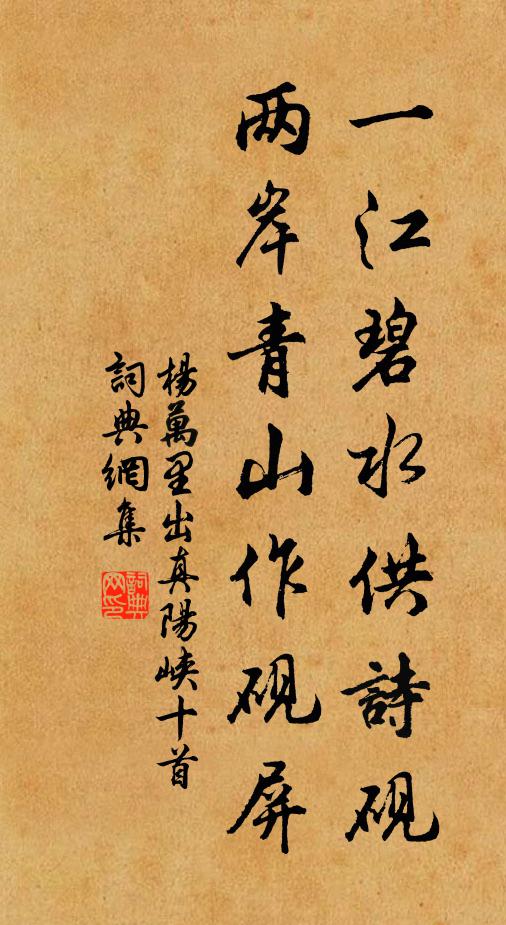 一江碧水供詩硯
两岸青山作硯屏
楊萬里出真陽峽十首
詞典網集
詞典网印